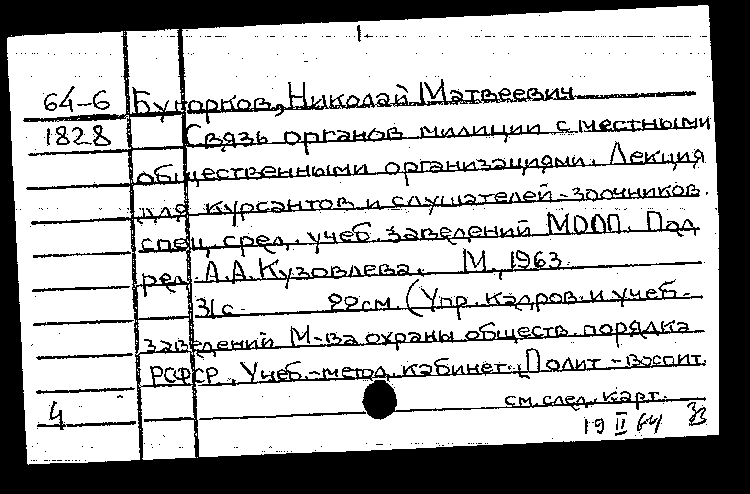 64-6 Бугорков, Николай Матвеевич
1828 Связь органов милиции с местными
общественными организациями. Лекция
для курсантов и слушателей-заочников
спец. сред. учеб. заведений МООП. Под
ред. А.А. Кузовлева. М., 1963.
31 с. 22 см. (Упр. кадров и учеб.
заведений М-ва охраны обществ. порядка
РСФСР. Учеб.-метод. кабинет. Полит-воспит.
4 см. след. карт.
19 II 64